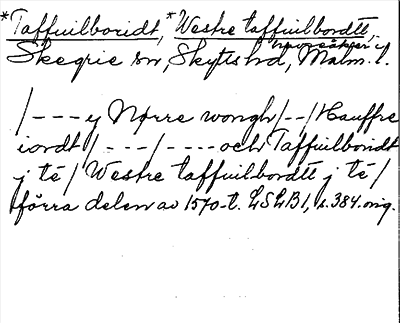 *Taffuilboridt, *Westre taffuilbordtt,
Skegrie sn, Skytts hd, Malm. l.
/---y Nørre wongh/--/Hauffre
iordt/---/----och Taffuilboridt
j té/Westre taffuilbordtt j té/
förra delen av 1570-t. LSLB1, s. 384. orig.